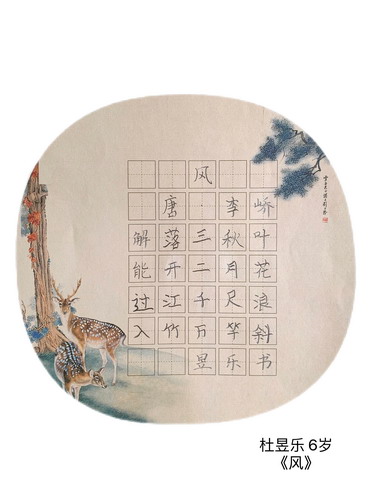 风
唐 李峤
解落三秋叶
能开二月花
过江千尺浪
入竹万竿斜
昱乐书
杜昱乐 6岁
《风》